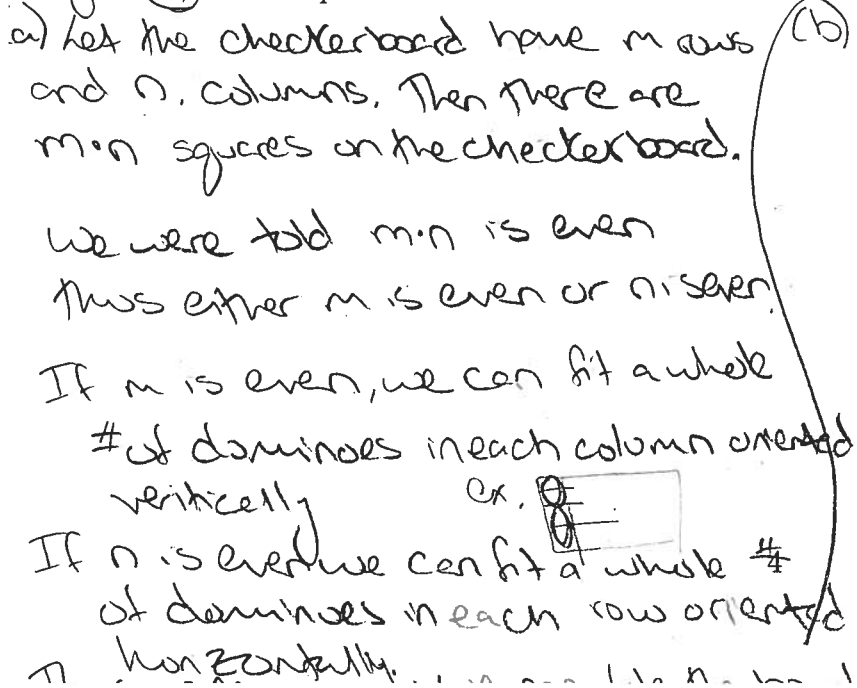 a) Let the checkerboard have m rows
(b)
and n. columns. Then there are
m·n squares on the checkerboard.
We were told m·n is even
thus either m is even or n is even.
If m is even, we can fit a whole
# of dominoes in each column oriented
vertically ex.
If n is even we can fit a whole #
of dominoes in each row oriented
horizontally.